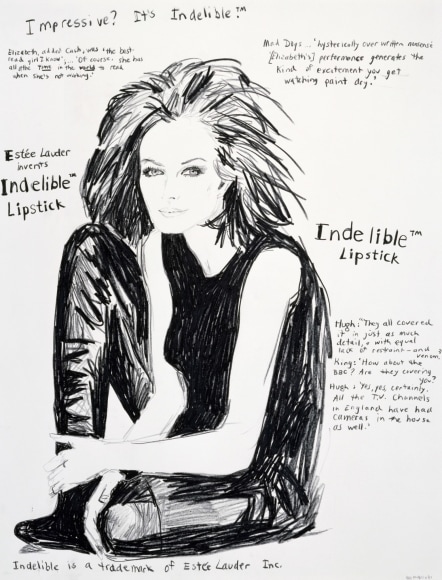 Impressive? It's Indelible.™
Elizabeth, added Cash, was 'the best-
read girl I know'... 'Of course she has
all the Time in the world to read
when she's not working.'
Mad Dogs... 'hysterically over written nonsense
[Elizabeth's] performance generates the
kind of excitement you get
watching paint dry.'
Estée Lauder
invents
Indelible™
Lipstick
Indelible™
Lipstick
Hugh: 'They all covered
it in just as much
detail, & with equal
lack of restraint—and
venom.
King: 'How about the
BBC? Are they covering
you?'
Hugh: 'Yes, yes, certainly.
All the T.V. Channels
in England have had
cameras in the house
as well.'
Indelible is a trademark of Estée Lauder Inc.